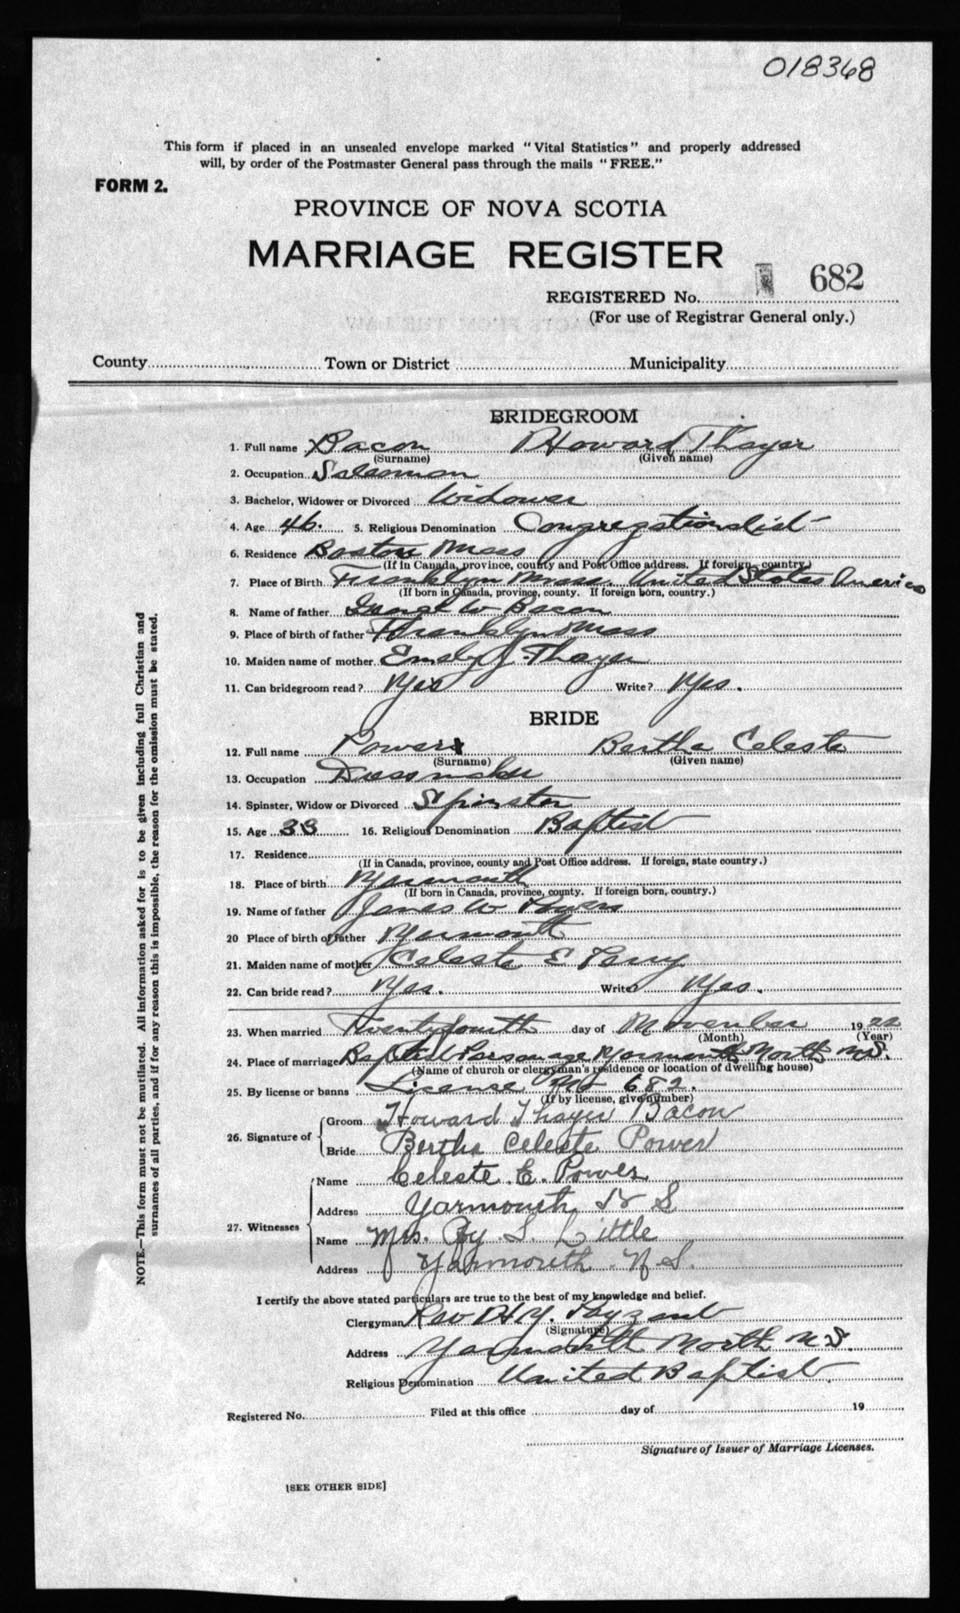 018368
This form if placed in an unsealed envelope marked "Vital Statistics" and properly addressed
will, by order of the Postmaster General pass through the mails "FREE."
FORM 2.
PROVINCE OF NOVA SCOTIA
MARRIAGE REGISTER
REGISTERED No. 682
(For use of Registrar General only.)
County Town or District Municipality
BRIDEGROOM
1. Full name Bacon Howard Thayer
(Surname) (Given name)
2. Occupation Salesman
3. Bachelor, Widower or Divorced Widower
4. Age 46. 5. Religious Denomination Congregationalist
6. Residence Boston Mass
(If in Canada, province, county and Post Office address. If foreign, country.)
7. Place of Birth Franklyn Mass. United States America
(If born in Canada, province, county. If foreign born, country.)
8. Name of father George W Bacon
9. Place of birth of father Franklyn Mass
10. Maiden name of mother Emely J. Thayer
11. Can bridegroom read? Yes Write? Yes.
BRIDE
12. Full name Powers Bertha Celeste
(Surname) (Given name)
13. Occupation Dressmaker
14. Spinster, Widow or Divorced Spinster
15. Age 33 16. Religious Denomination Baptist
17. Residence
(If in Canada, province, county and Post Office address. If foreign, state country.)
18. Place of birth Yarmouth
(If born in Canada, province, county. If foreign born, country.)
19. Name of father James W Powers
20 Place of birth of father Yarmouth
21. Maiden name of mother Celeste E Perry
22. Can bride read? Yes. Write Yes.
23. When married Twenty fourth day of November 1922
(Month) (Year)
24. Place of marriage Baptist Parsonage Yarmouth North N.S.
(Name of church or clergyman's residence or location of dwelling house)
25. By license or banns License No 682.
(If by license, give number)
26. Signature of Groom Howard Thayer Bacon
Bride Bertha Celeste Power
27. Witnesses Name Celeste E. Power
Address Yarmouth N S
Name Mrs. S. Little
Address Yarmouth. N. S.
I certify the above stated particulars are true to the best of my knowledge and belief.
Clergyman Rev H.Y.
(Signature)
Address Yarmouth North N S.
Religious Denomination United Baptist.
Registered No. Filed at this office day of 19
Signature of Issuer of Marriage Licenses.
[SEE OTHER SIDE]
NOTE.—This form must not be mutilated. All information asked for is to be given including full Christian and
surnames of all parties, and if for any reason this is impossible, the reason for the omission must be stated.